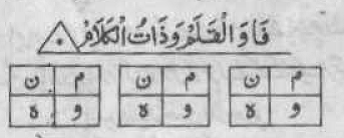 فَا وَ الْقَلَمْ وَذَاتُ الْكَلَامْ ۰
م ن م ن م ن
و ه و ه و ه